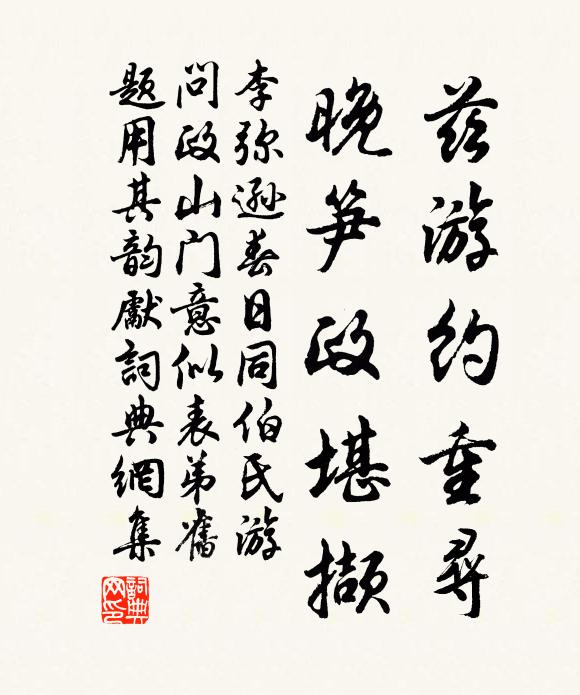 茲游約重尋
晚笋政堪擷
李弥遜春日同伯氏游
問政山门意似表弟舊
題用其韵獻詞典網集
詞典网印